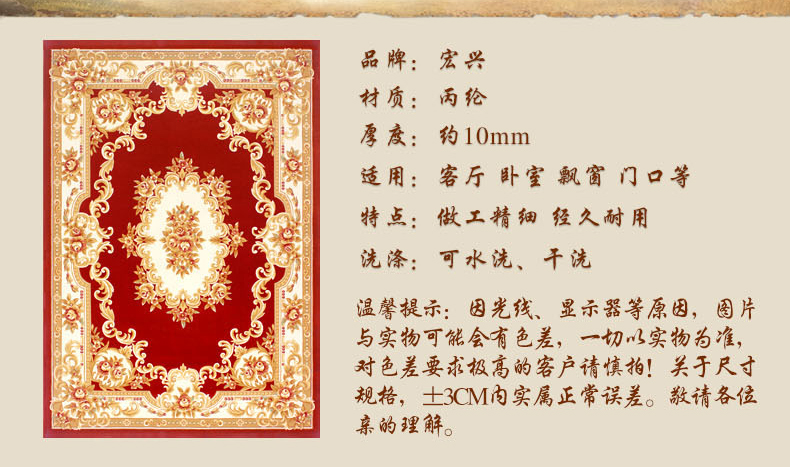 品牌：宏兴
材质：丙纶
厚度：约10mm
适用：客厅 卧室 飘窗 门口等
特点：做工精细 经久耐用
洗涤：可水洗、干洗
温馨提示：因光线、显示器等原因，图片
与实物可能会有色差，一切以实物为准，
对色差要求极高的客户请慎拍！关于尺寸
规格，±3CM内实属正常误差。敬请各位
亲的理解。